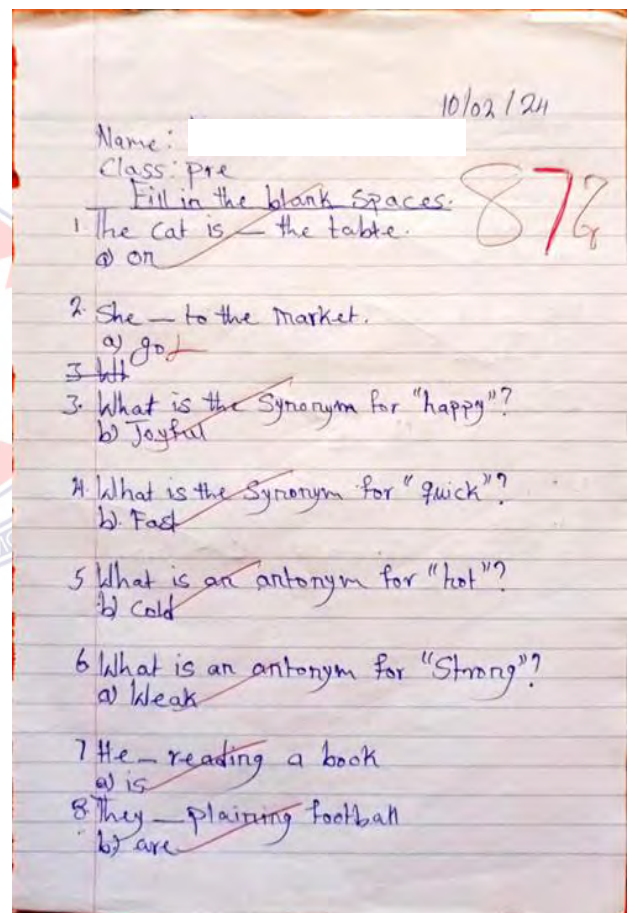 10/02/24
Name:
Class: pre
Fill in the blank spaces.
87%
1 The cat is — the table.
a) on
2. She — to the market.
a) go
3 Wh
3. What is the Synonym for "happy"?
b) Joyful
4. What is the Synonym for "quick"?
b). Fast
5 What is an antonym for "hot"?
b) Cold
6 What is an antonym for "Strong"?
a) Weak
7 He — reading a book
a) is
8. They — plaining football
b) are